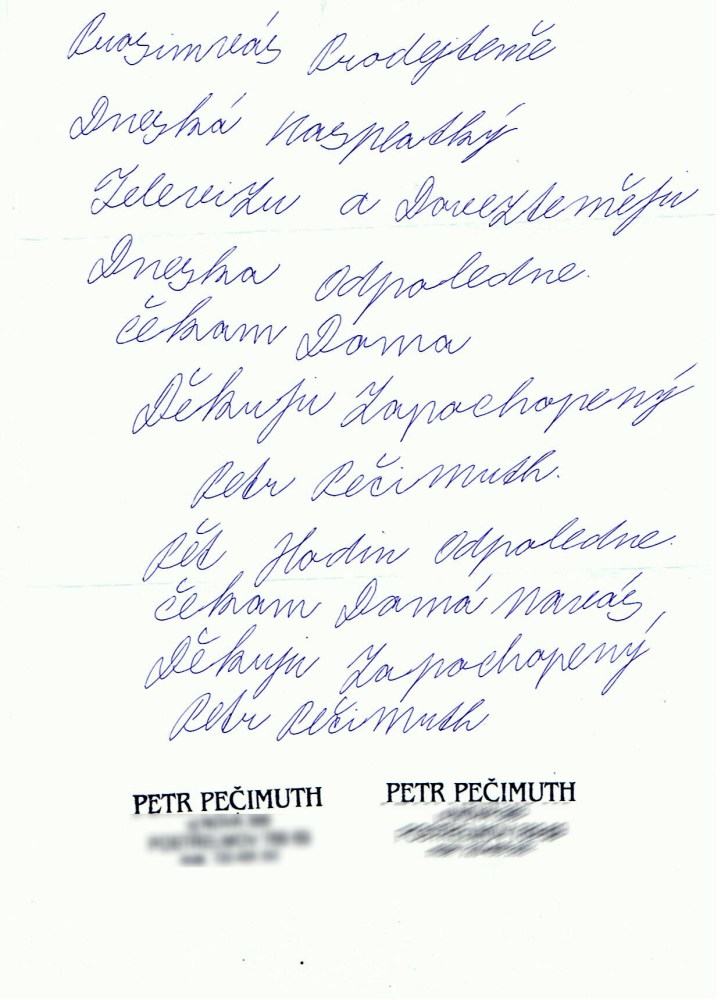 Prosimvás Prodejtemě
Dneská nasplatký
Televizu a Dovezteměju
Dneska odpoledne.
čekam Doma
Děkuju Zapochopený
Petr Pečimuth.
Pět Hodin odpoledne.
čekam Domá Naváš,
Děkuju Zapochopený
Petr Pečimuth
PETR PEČIMUTH PETR PEČIMUTH